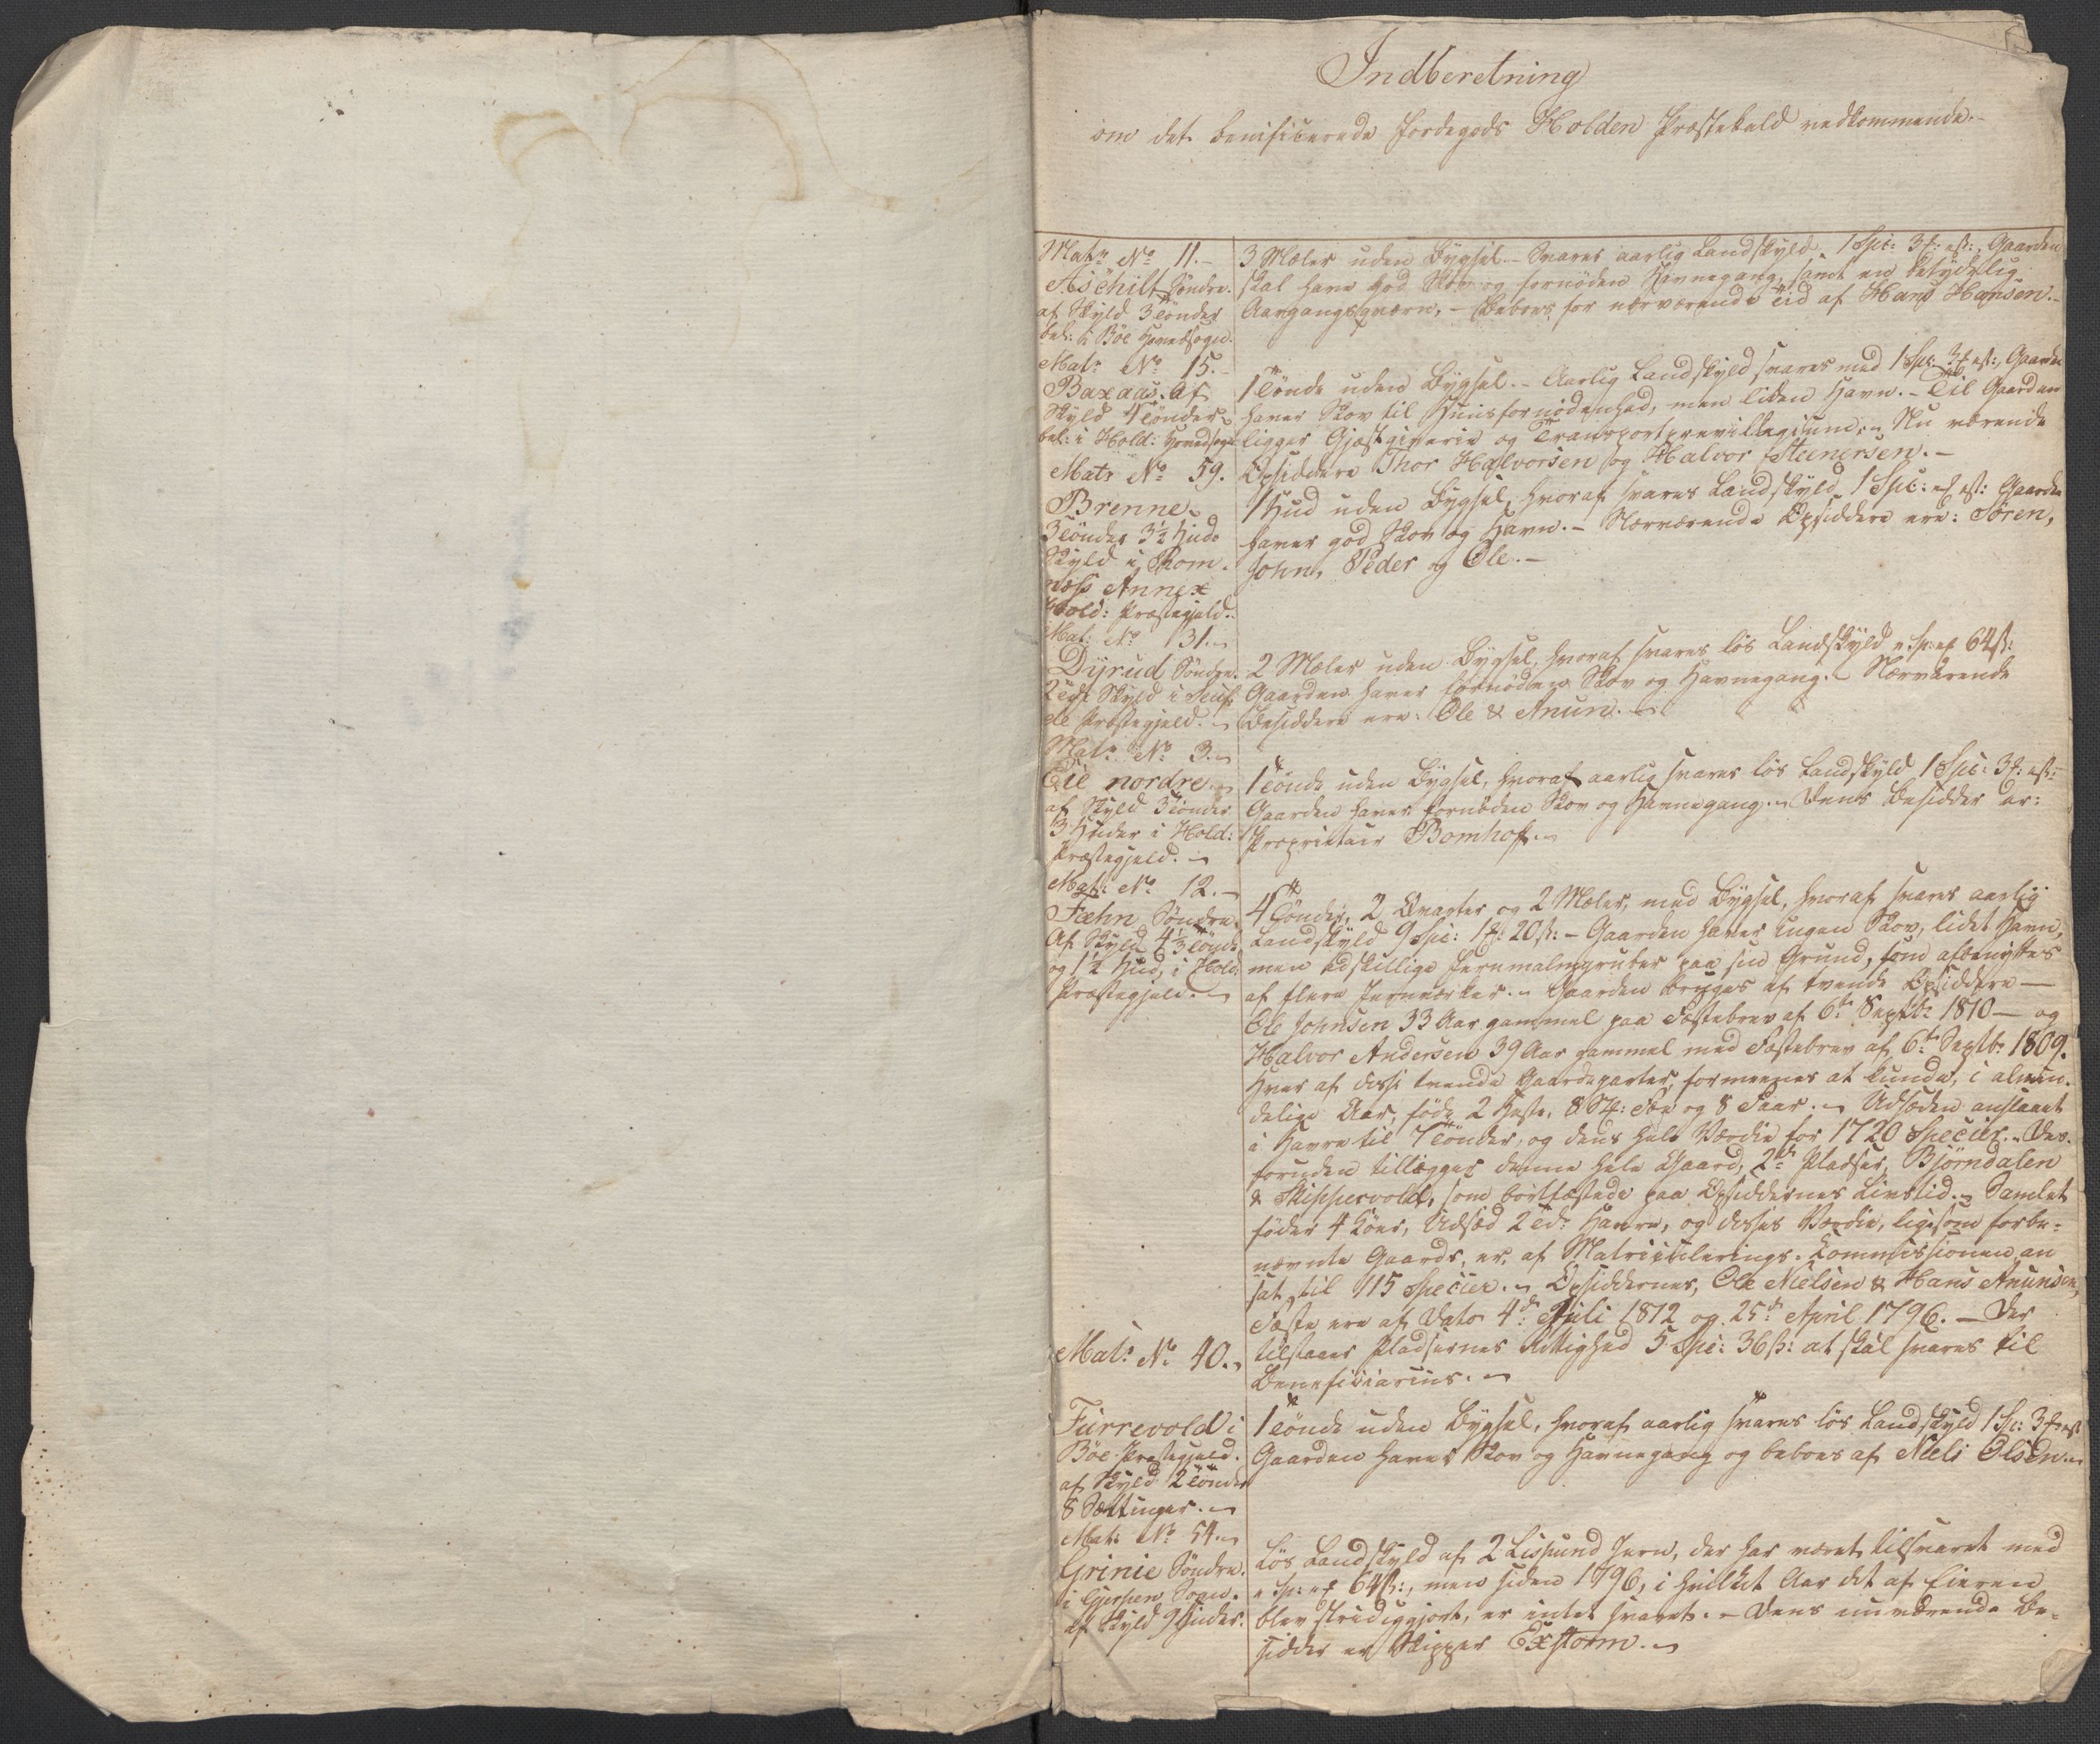 Indberetning
om det beneficerede Jordegods Holden Præstekald vedkommende.-
Matr No 11.-
Aschilt Söndre.
af Skyld 3 Tönder
bel: i Böe Hovedsogn.
3 Mæler uden Bÿgsel.- Svares aarlig Landskÿld 1 Spe: 3f: ß:, Gaarden
skal have god Skov og fornöden Havnegang, samt en betÿdelig
Aargangsqværn, - Beboes for nærværende Tid af Hans Hansen.-
Matr No 15.-
Baxaas. Af
Skÿld 4 Tönder
bel: i Hold: Hovedsogn
1 Tönde uden Bÿgsel.- Aarlig Landskÿld svares med 1 Spe: 3f ß:, Gaarden
haver Skov til Huusfornödenhed, men liden Havn.- Til Gaarden
ligger Gjæstgiverie og Transportprevillegium.- Nu værende
Opsiddere Thor Halvorsen og Halvor Steenersen.-
Matr No 59.
Brenne
3 Tönder 3½ Hud
Skÿld i Rom-
næss Annex
Hold: Præstegjeld.
1 Hud uden Bÿgsel, hvoraf svares Landskÿld 1 Spe: f ß: Gaarden
haver god Skov og Havn.- Nærværende Opsiddere ere: Sören,
John, Peder og Ole.-
Mat: No 31.-
Dÿrud Söndre.
2 Skÿld i Seuf-
de Præstegjeld.-
2 Mæler uden Bÿgsel, hvoraf svares lös Landskÿld Sp: f 64ß:
Gaarden haver fornöden Skov og Havnegang.- Nærværende
Besiddere ere: Ole & Anun.-
Matr No 3.-
Eie nordre.-
af Skÿld 3 Tönder
3 Huder i Hold:
Præstegjeld.-
1 Tönde uden Bÿgsel, hvoraf aarlig svares lös Landskÿld 1 Spe: 3f: ß:-
Gaarden haver fornöden Skov og Havnegang.- Dens Besidder er:
Proprietair Bomhof.-
Mat: No 12.-
Fæhn Söndre.
Af Skÿld 4⅓ Tönde
og 1½ Hud, i Hold:
Præstegjeld.-
4 Tönder, 2 Qvarter og 2 Mæler, med Bÿgsel, hvoraf svares aarlig
Landskÿld 9 Spe: 1f: 20ß:- Gaarden haver ingen Skov, lidet Havn,
men adskillige Jernmalmgruber paa sin Grund, som afbenÿttes
af flere Jernværker.- Gaarden bruges af tvende Opsiddere -
Ole Johnsen 33 Aar gammel paa Fæstebrev af 6te Septbr 1810 - og
Halvor Andersen 39 Aar gammel med Fæstebrev af 6te Septbr 1809.
Hver af disse tvende Gaardeparter, formeenes at kunde, i almin-
delige Aar, föde 2 Heste, 8 St: Fæe og 8 Faar.- Udsæden anslaaet
i Havre til 7 Tönder, og dens hele Værdie for 1720 Species.- Des-
foruden tillægges denne hele Gaard, 2de Pladser, Björndalen
& Skippervold, som bortfæstede paa Opsiddernes Livstid.- Samlet
föder 4 Köer, Udsæd 2 Td: Havre, og disses Værdie, ligesom forbe-
nævnte Gaards, er, af Matriculerings-Commissionen an
sat, til 115 Species.- Opsiddernes, Ole Nielsen & Hans Anunsen,
Fæste ere af Dato 4de Juli 1812 og 25de April 1796.- Der
tilstaaes Pladsernes Rettighed 5 Spe: 36ß: at skal svares til
Beneficiarius.-
Matr No 40.-
Furrevold i
Böe Præstegjeld.
af Skÿld 2 Tönder
8 Sættinger.-
1 Tönde uden Bÿgsel, hvoraf aarlig svares lös Landskÿld 1 Sp: 3f ß
Gaarden haver Skov og Havnegang og beboes af Niels Olsen.-
Matr No 54.-
Grinie Söndre.
i Gjerpen Sogn.
af Skÿld 9 Huder.
Lös Landskÿld af 2 Lispund Jern, der har været tilsvaret med
Sp: f 64ß:, men siden 1796, i hvilket Aar det af Eieren
blev stridiggjort, er intet svaret.- Dens nuværende Be-
sidder er Skipper Exstorm.-